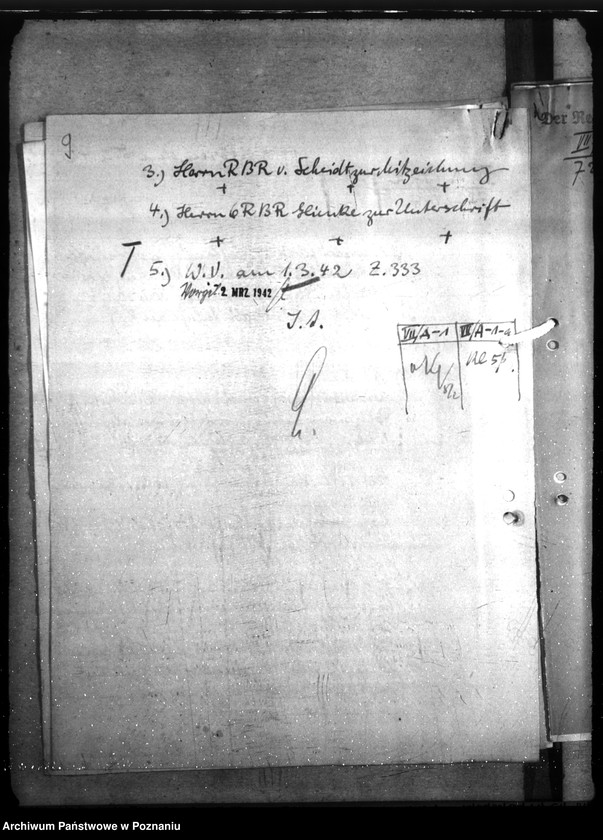 9
3.) Herrn RBR v. Scheidt zur Mitzeichnung
4.) Herrn ORBR Slienke zur Unterschrift
5.) W.V. am 1.3.42 Z.333
Vorgel. 2. MRZ. 1942
I.A.
VII/A-1 VII/A-1-a
Der Re
VII
72
Archiwum Państwowe w Poznaniu